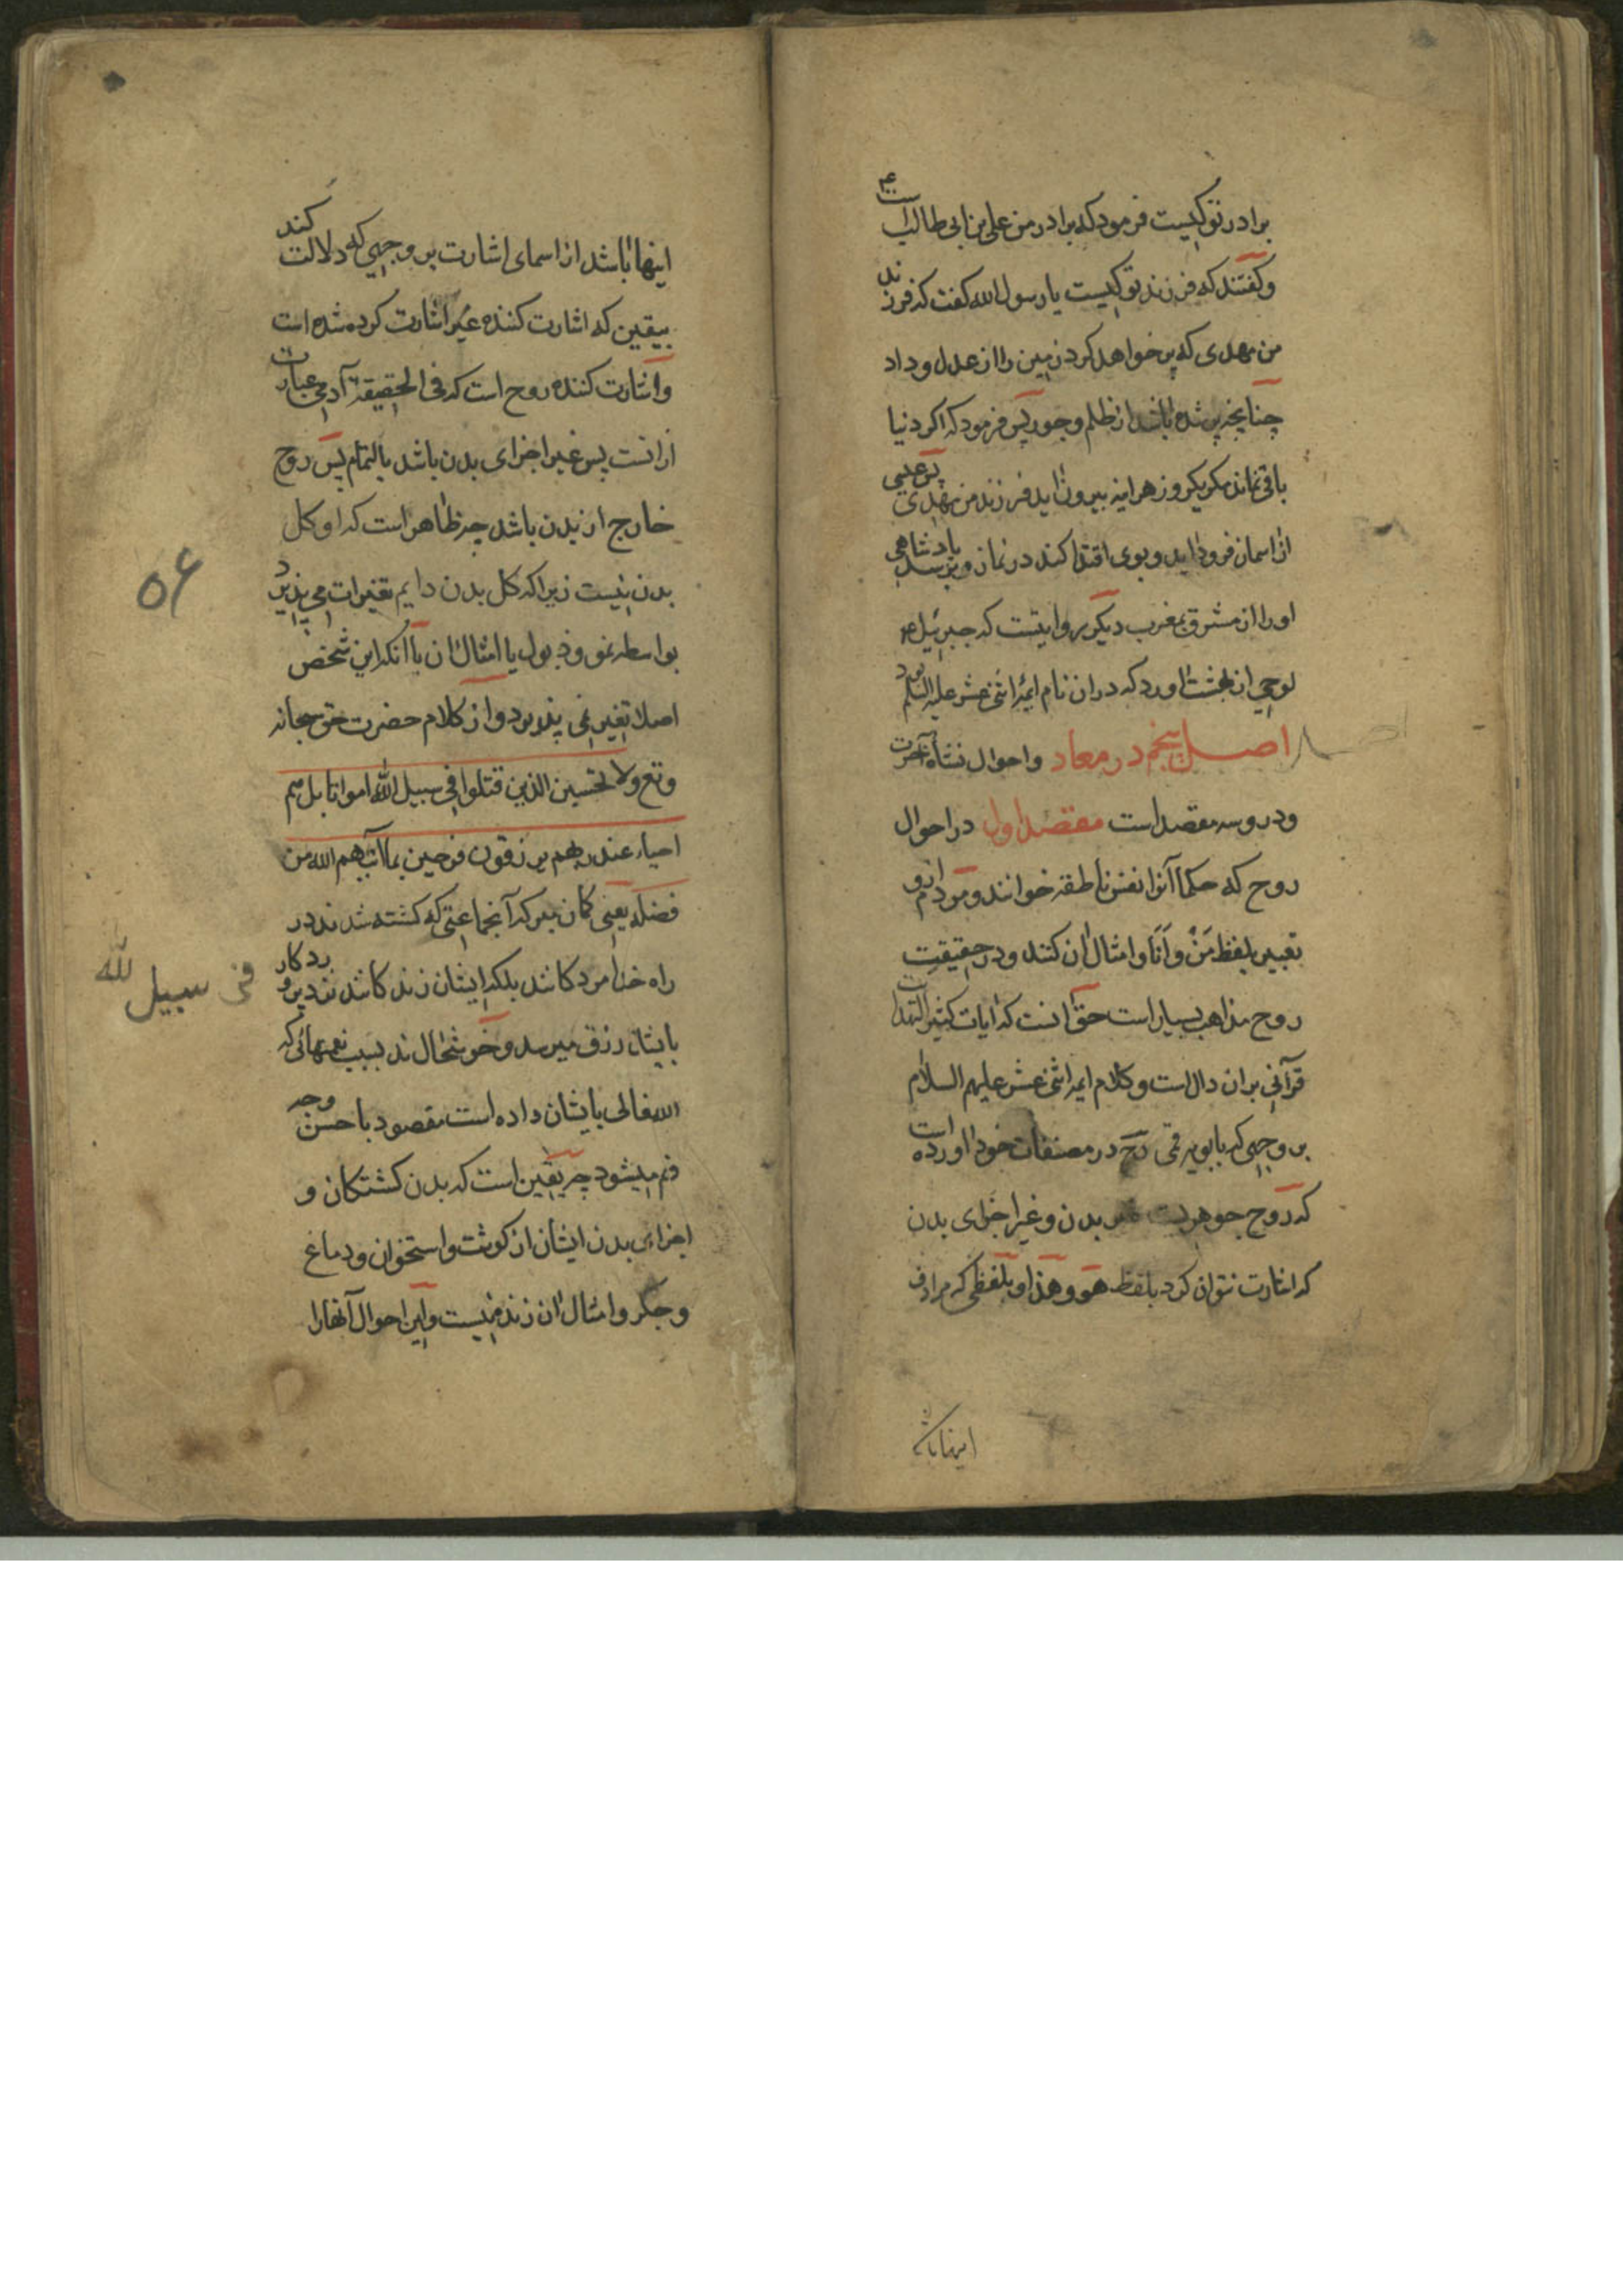 برادر تو کیست فرمود که برادر من علی بن ابی طالب است ۴
و گفتند که فرزند تو کیست یا رسول الله گفت که فرزند
من مهدی که پر خواهد کرد زمین را از عدل و داد
چنانچه پر شده باشد از ظلم و جور پس فرمود که اکر دنیا
باقی نماند مکر یکروز هر اینه بیرون اید فرزند من مهدی پس عیسی
از اسمان فرود اید و بوی اقتدا کند در نماز و برسد پادشاهی
او را از مشرق بمغرب دیکر روایتست که جبرئیل ع
لوحی از بهشت اورد که دران نام ایمه اثنی عشر علیه السلم بود
اصل پنجم در معاد و احوال نشأه آخرت
و درو سه مقصد است مقصد اول در احوال
روح که حکما آنرا نفس ناطقه خوانند و مردم ازو
تعبیر بلفظ مَنْ و اَنَا و امثال ان کنند و در حقیقت
روح مذاهب بسیار است حق انست که ایات کثیر
قرآنی بران دال است و کلام ایمه اثنی عشر علیهم السلام
بر وجهی که بابویه قمی رح در مصنفات خود اورده است
که روح جوهریست غیر بدن و غیر اجزای بدن
که اشارت نتوان کرد بلفظ هو و هذا و بلفظی که مرادف
اینها باشد
اینها باشد از اسمای اشارت بر وجهی که دلالت کند
بیقین که اشارت کننده غیر اشارت کرده شده است
و اشارت کننده روح است که فی الحقیقة آدمی عبارت
ازانست پس غیر اجزای بدن باشد بالتمام پس روح
خارج از بدن باشد چه ظاهر است که او کل
بدن نیست زیرا که کل بدن دایم تغیرات می پذیرد
بواسطه نمو و ذبول یا امثال ان با آنکه این شخص
اصلا تغیر نمی پذیرد و از کلام حضرت حق سبحانه
و تع و لا تحسبن الذین قتلوا فی سبیل الله امواتا بل هم
احیاء عند ربهم یرزقون فرحین بما آتیهم الله من
فضله یعنی کمان مبر که آنجماعتی که کشته شدند در
راه خدا مرد کاشد بلکه ایشان زند کاشد نزد پرورد کار
بایشان رزق میرسد و خوشحال ند بسبب نعمتهائی که
الله تعالی بایشان داده است مقصود باحسن وجه
فهم میشود چه یقین است که بدن کشتکان و
اجزای بدن ایشان از کوشت و استخوان و دماغ
و جکر و امثال ان زنده نیست و این احوال آنها را
۵۶
فی سبیل لله